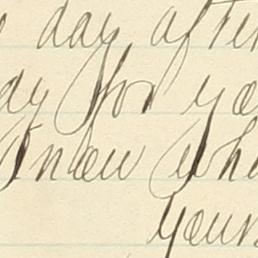 day after
day for yo
Know wha
Yours